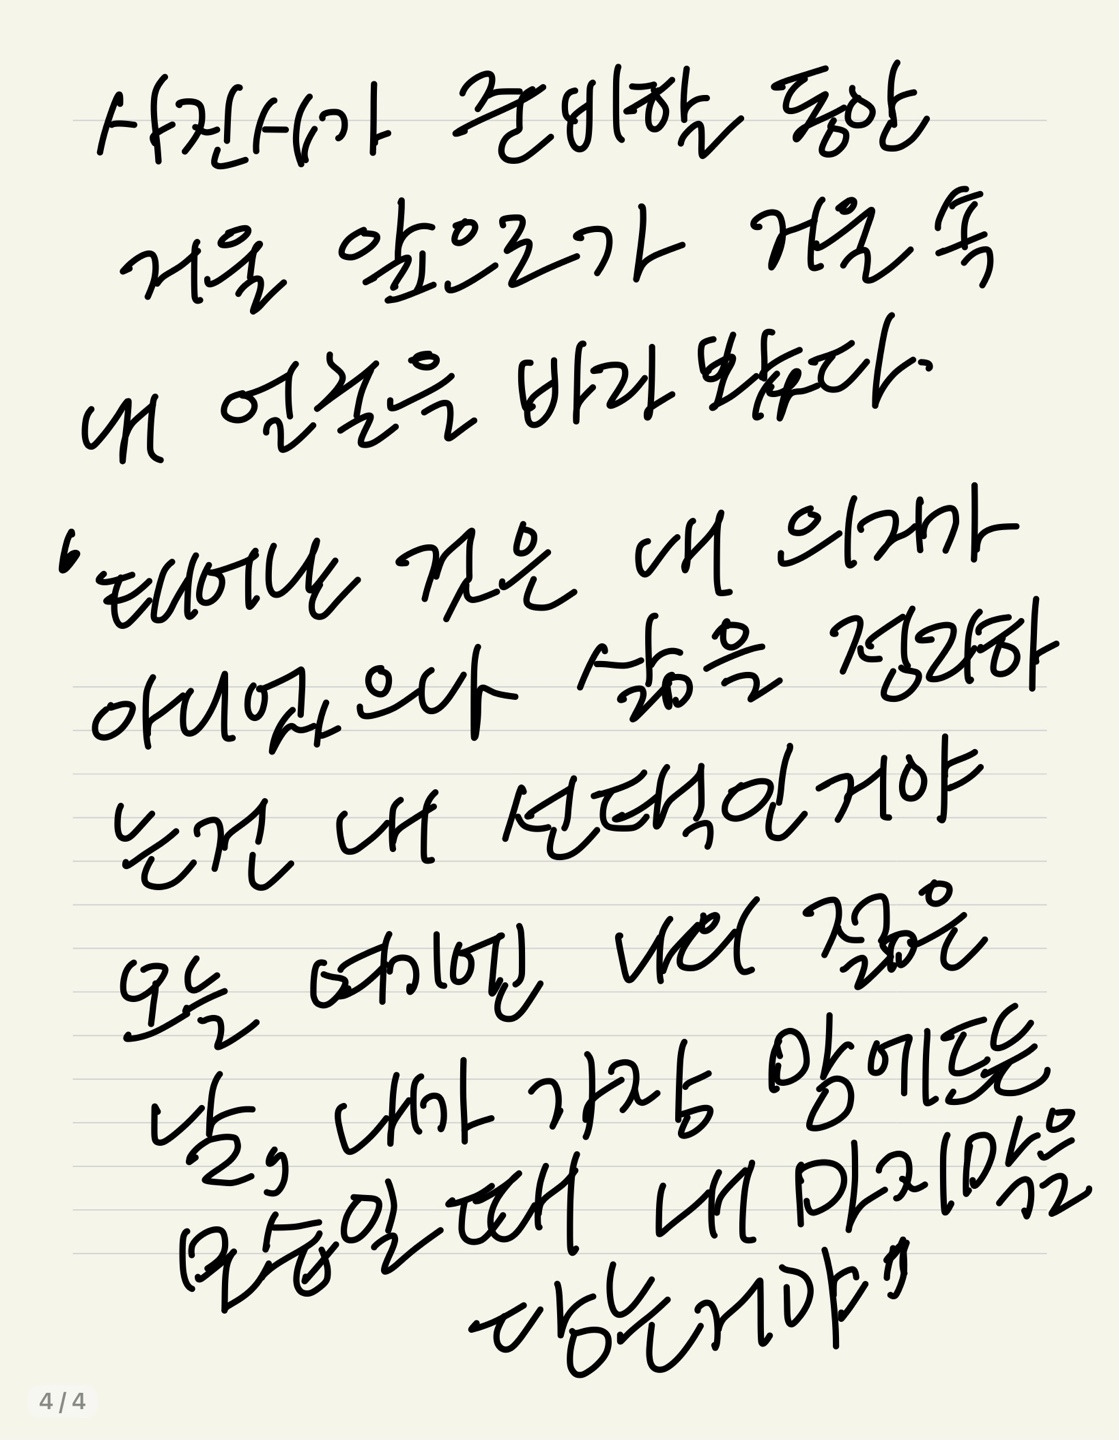 사진사가 준비할 동안
거울 앞으로가 거울 속
내 얼굴을 바라 봤다.
‘태어난 것은 내 의지가
아니었으나 삶을 정리하
는건 내 선택인거야
오늘 여기엔 나의 젊은
날, 내가 가장 맘에드는
모습일때 내 마지막을
담는거야"
4/4